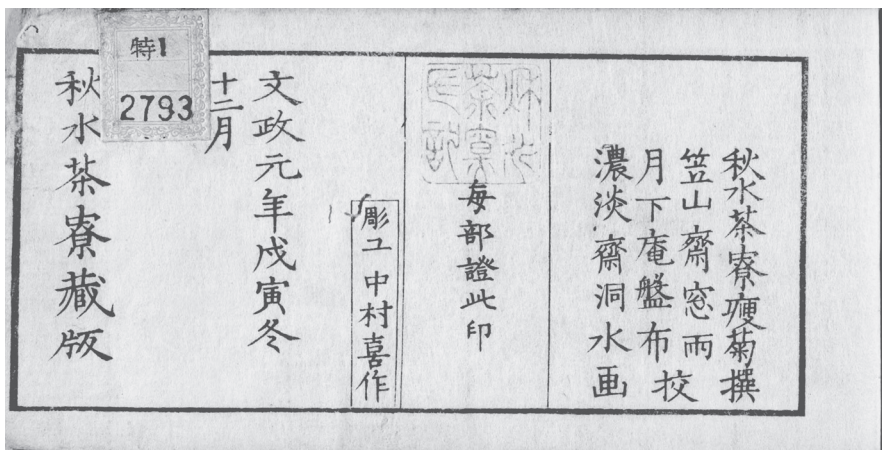 秋水茶寮痩菊撰
笠山齋窓雨
月下庵盤布挍
濃淡齋洞水画
毎部證此印
彫工 中村喜作
文政元年戊寅冬
十二月
秋水茶寮藏版
特1
2793